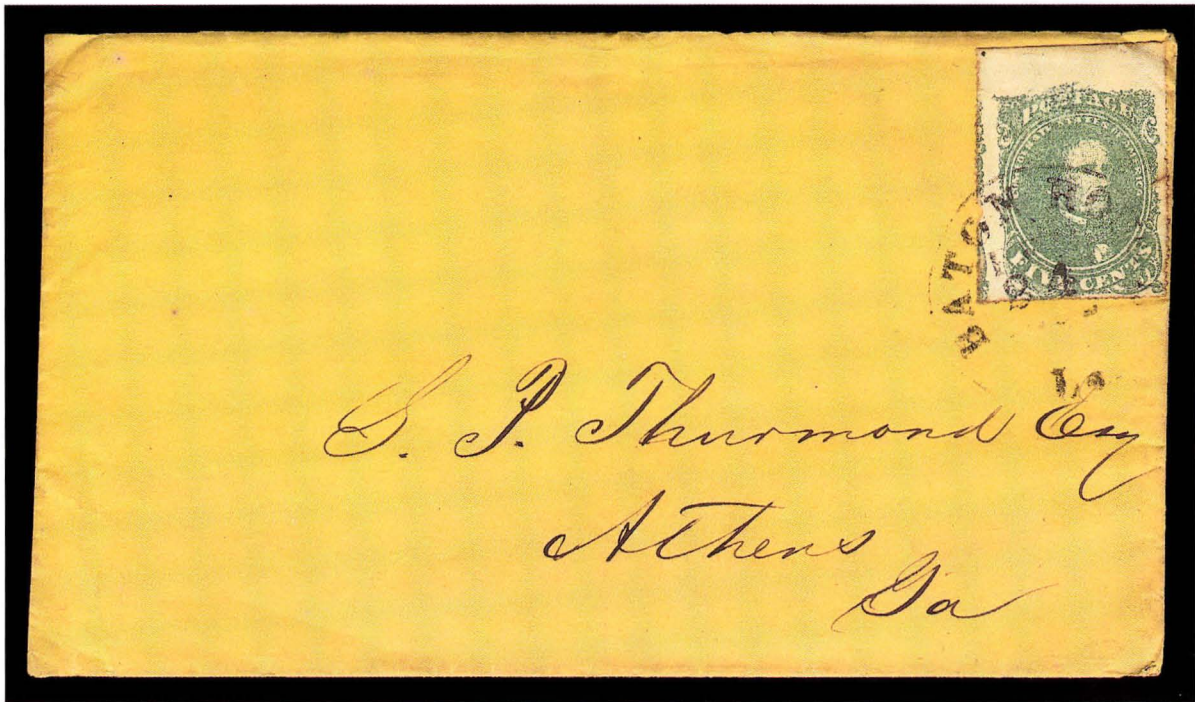 POSTAGE
FIVE CENTS
BATON R
La
S. P. Thurmond Esq
Athens
Ga